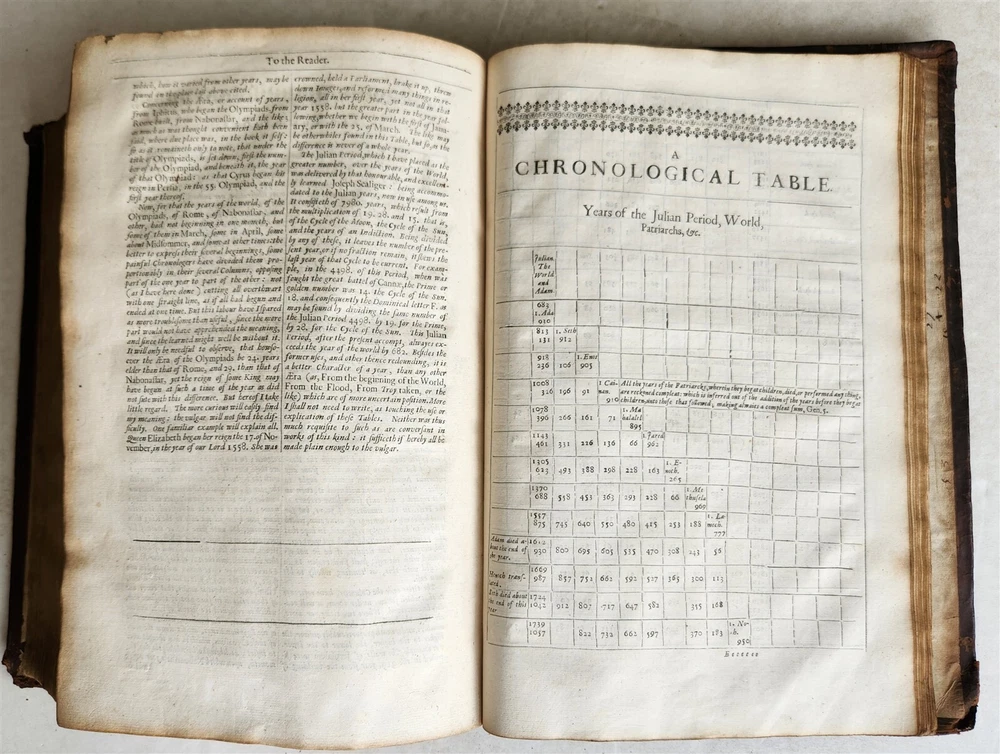 To the Reader.
which, how it varied from other years, may be
found in the place above cited.
Concerning the Æra, or account of years,
from Iphitus, who began the Olympiads, from
Rome built, from Nabonassar, and the like;
as much as was thought convenient hath been
said, where due place was, in the book it self:
so as it remaineth only to note, that under the
title of Olympiads, is set down, first the num-
ber of the Olympiad, and beneath it, the year
of that Olympiad: as that Cyrus began his
reign in Persia, in the 55. Olympiad, and the
first year thereof.
Now, for that the years of the world, of the
Olympiads, of Rome, of Nabonassar, and
other, had not beginning in one moneth, but
some of them in March, some in April, some
about Midsommer, and some at other times: the
better to express their several beginnings, some
painful Chronologers have divided them pro-
portionably in their several Columns, opposing
part of the one year to part of the other: not
(as I have here done) cutting all overthwart
with one straight line, as if all had begun and
ended at one time. But this labour have I spared
as more troublesome than useful, since the more
part would not have apprehended the meaning,
and since the learned might well be without it.
It will only be needful to observe, that howso-
ever the Æra of the Olympiads be 24. years
elder than that of Rome, and 29. than that of
Nabonassar, yet the reign of some King may
have begun at such a time of the year as did
not sute with this difference. But hereof I take
little regard. The more curious will easily find
my meaning: the vulgar will not find the dif-
ficulty. One familiar example will explain all.
Queen Elizabeth began her reign the 17. of No-
vember, in the year of our Lord 1558. She was
crowned, held a Parliament, brake it up, threw
down Images, and reformed many things in re-
ligion, all in her first year, yet not all in that
year 1558. but the greater part in the year fol-
lowing, whether we begin with the first of Janu-
ary, or with the 25. of March. The like may
be otherwhiles found in this Table, but so, as the
difference is never of a whole year.
The Julian Period, which I have placed as the
greater number, over the years of the World,
was delivered by that honourable, and excellent-
ly learned Joseph Scaliger: being accommo-
dated to the Julian years, now in use among us.
It consisteth of 7980. years, which result from
the multiplication of 19. 28. and 15. that is,
of the Cycle of the Moon, the Cycle of the Sun,
and the years of an Indiction. Being divided
by any of these, it leaves the number of the pre-
sent year, or if no fraction remain, it shews the
last year of that Cycle to be current. For exam-
ple, in the 4498. of this Period, when was
fought the great battel of Cannæ, the Prime or
golden number was 14. the Cycle of the Sun,
18. and consequently the Dominical letter F. as
may be found by dividing the same number of
the Julian Period 4498. by 19. for the Prime,
by 28. for the Cycle of the Sun. This Julian
Period, after the present accompt, always ex-
ceeds the year of the world by 682. Besides the
former uses, and other thence redounding, it is
a better Character of a year, than any other
Æra (as, From the beginning of the World,
From the Flood, From Troy taken, or the
like) which are of more uncertain position. More
I shall not need to write, as touching the use or
explication of these Tables. Neither was thus
much requisite to such as are conversant in
works of this kind: it sufficeth if hereby all be
made plain enough to the vulgar.
A
CHRONOLOGICAL TABLE.
Years of the Julian Period, World,
Patriarchs, &c.
Julian
The
World
and
Adam
683
1. Ada
930
813 1. Seth
131 912
918 1. Enos
236 106 905
1008 1 Cai-
326 196 91 nan
910
All the years of the Patriarchs, wherein they begat children, died, or performed any thing,
are reckoned compleat: which is inferred out of the addition of the years before they begat
children, unto those that followed, making alwaies a compleat sum, Gen. 5.
1078 1. Ma
396 266 161 71 halaleel
895
1143 1. Jared
461 331 226 136 66 962
1305 1. E-
623 493 388 298 228 163 noch.
365
1370 1. Me
688 558 453 363 293 228 66 thusela
969
1557 1. La
875 745 640 550 480 415 253 188 mech.
777
Adam died a- 1612
bout the end of 930 800 695 605 535 470 308 243 56
the year.
Henoch trans- 1669
lated. 987 857 752 662 592 527 365 300 113
Seth died about 1724
the end of this 1042 912 807 717 647 582 355 168
year
1739 1. No-
1057 822 732 662 597 370 183 ah.
950